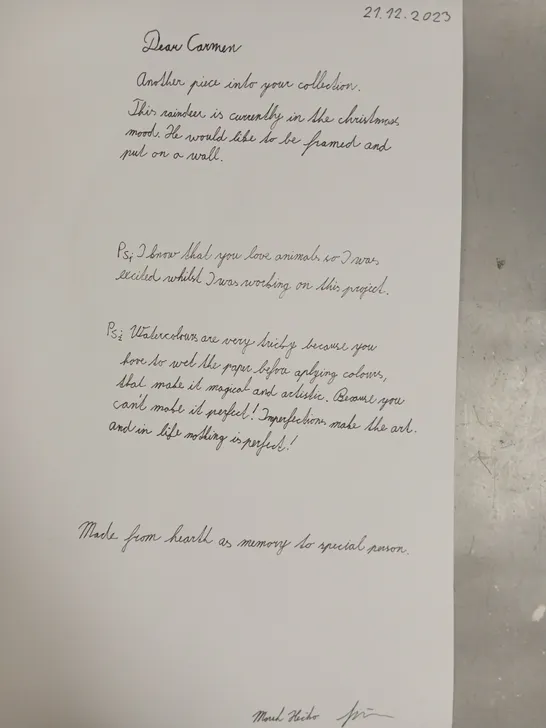 21.12.2023
Dear Carmen
Another piece into your collection.
This raindeer is currently in the christmas
mood. He would like to be framed and
put on a wall.
Ps; I know that you love animals so I was
excited whilst I was working on this project.
Ps; Watercolours are very tricky because you
have to wet the paper before aplying colours,
that make it magical and artistic. Because you
can't make it perfect! Imperfections make the art.
and in life nothing is perfect!
Made from hearth as memory to special person.